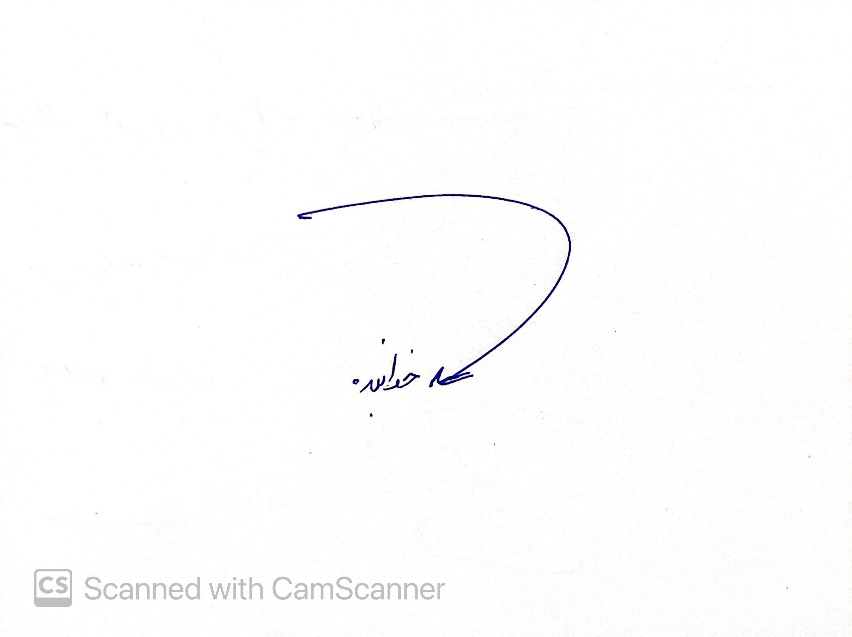 خدابنده
CS Scanned with CamScanner